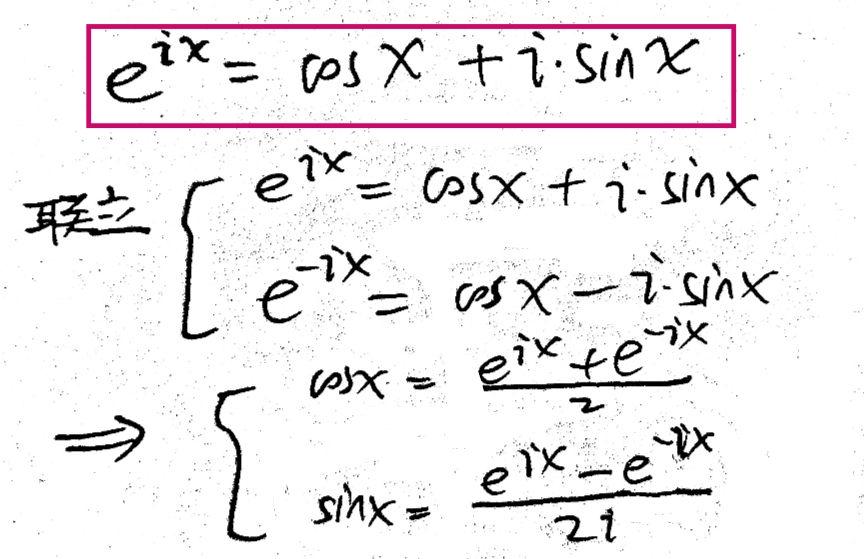 e^{ix} = cos x + i·sin x
联立 { e^{ix} = cos x + i·sin x
e^{-ix} = cos x - i·sin x
⇒ { cos x = \frac{e^{ix} + e^{-ix}}{2}
sin x = \frac{e^{ix} - e^{-ix}}{2i}